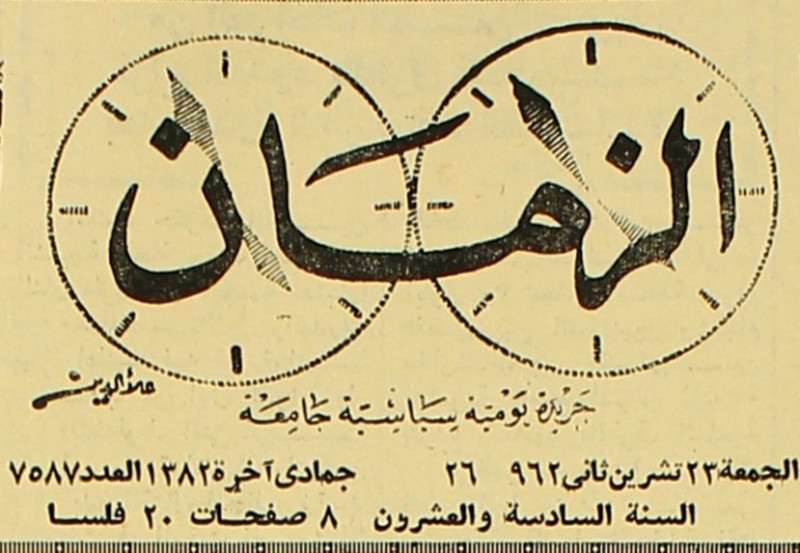 الزمان
علاء الدين
جريدة يومية سياسية جامعة
الجمعة ٢٣ تشرين ثاني ٩٦٢ ٢٦ جمادى آخرة ١٣٨٢ العدد ٧٥٨٧
السنة السادسة والعشرون ٨ صفحات ٢٠ فلسا